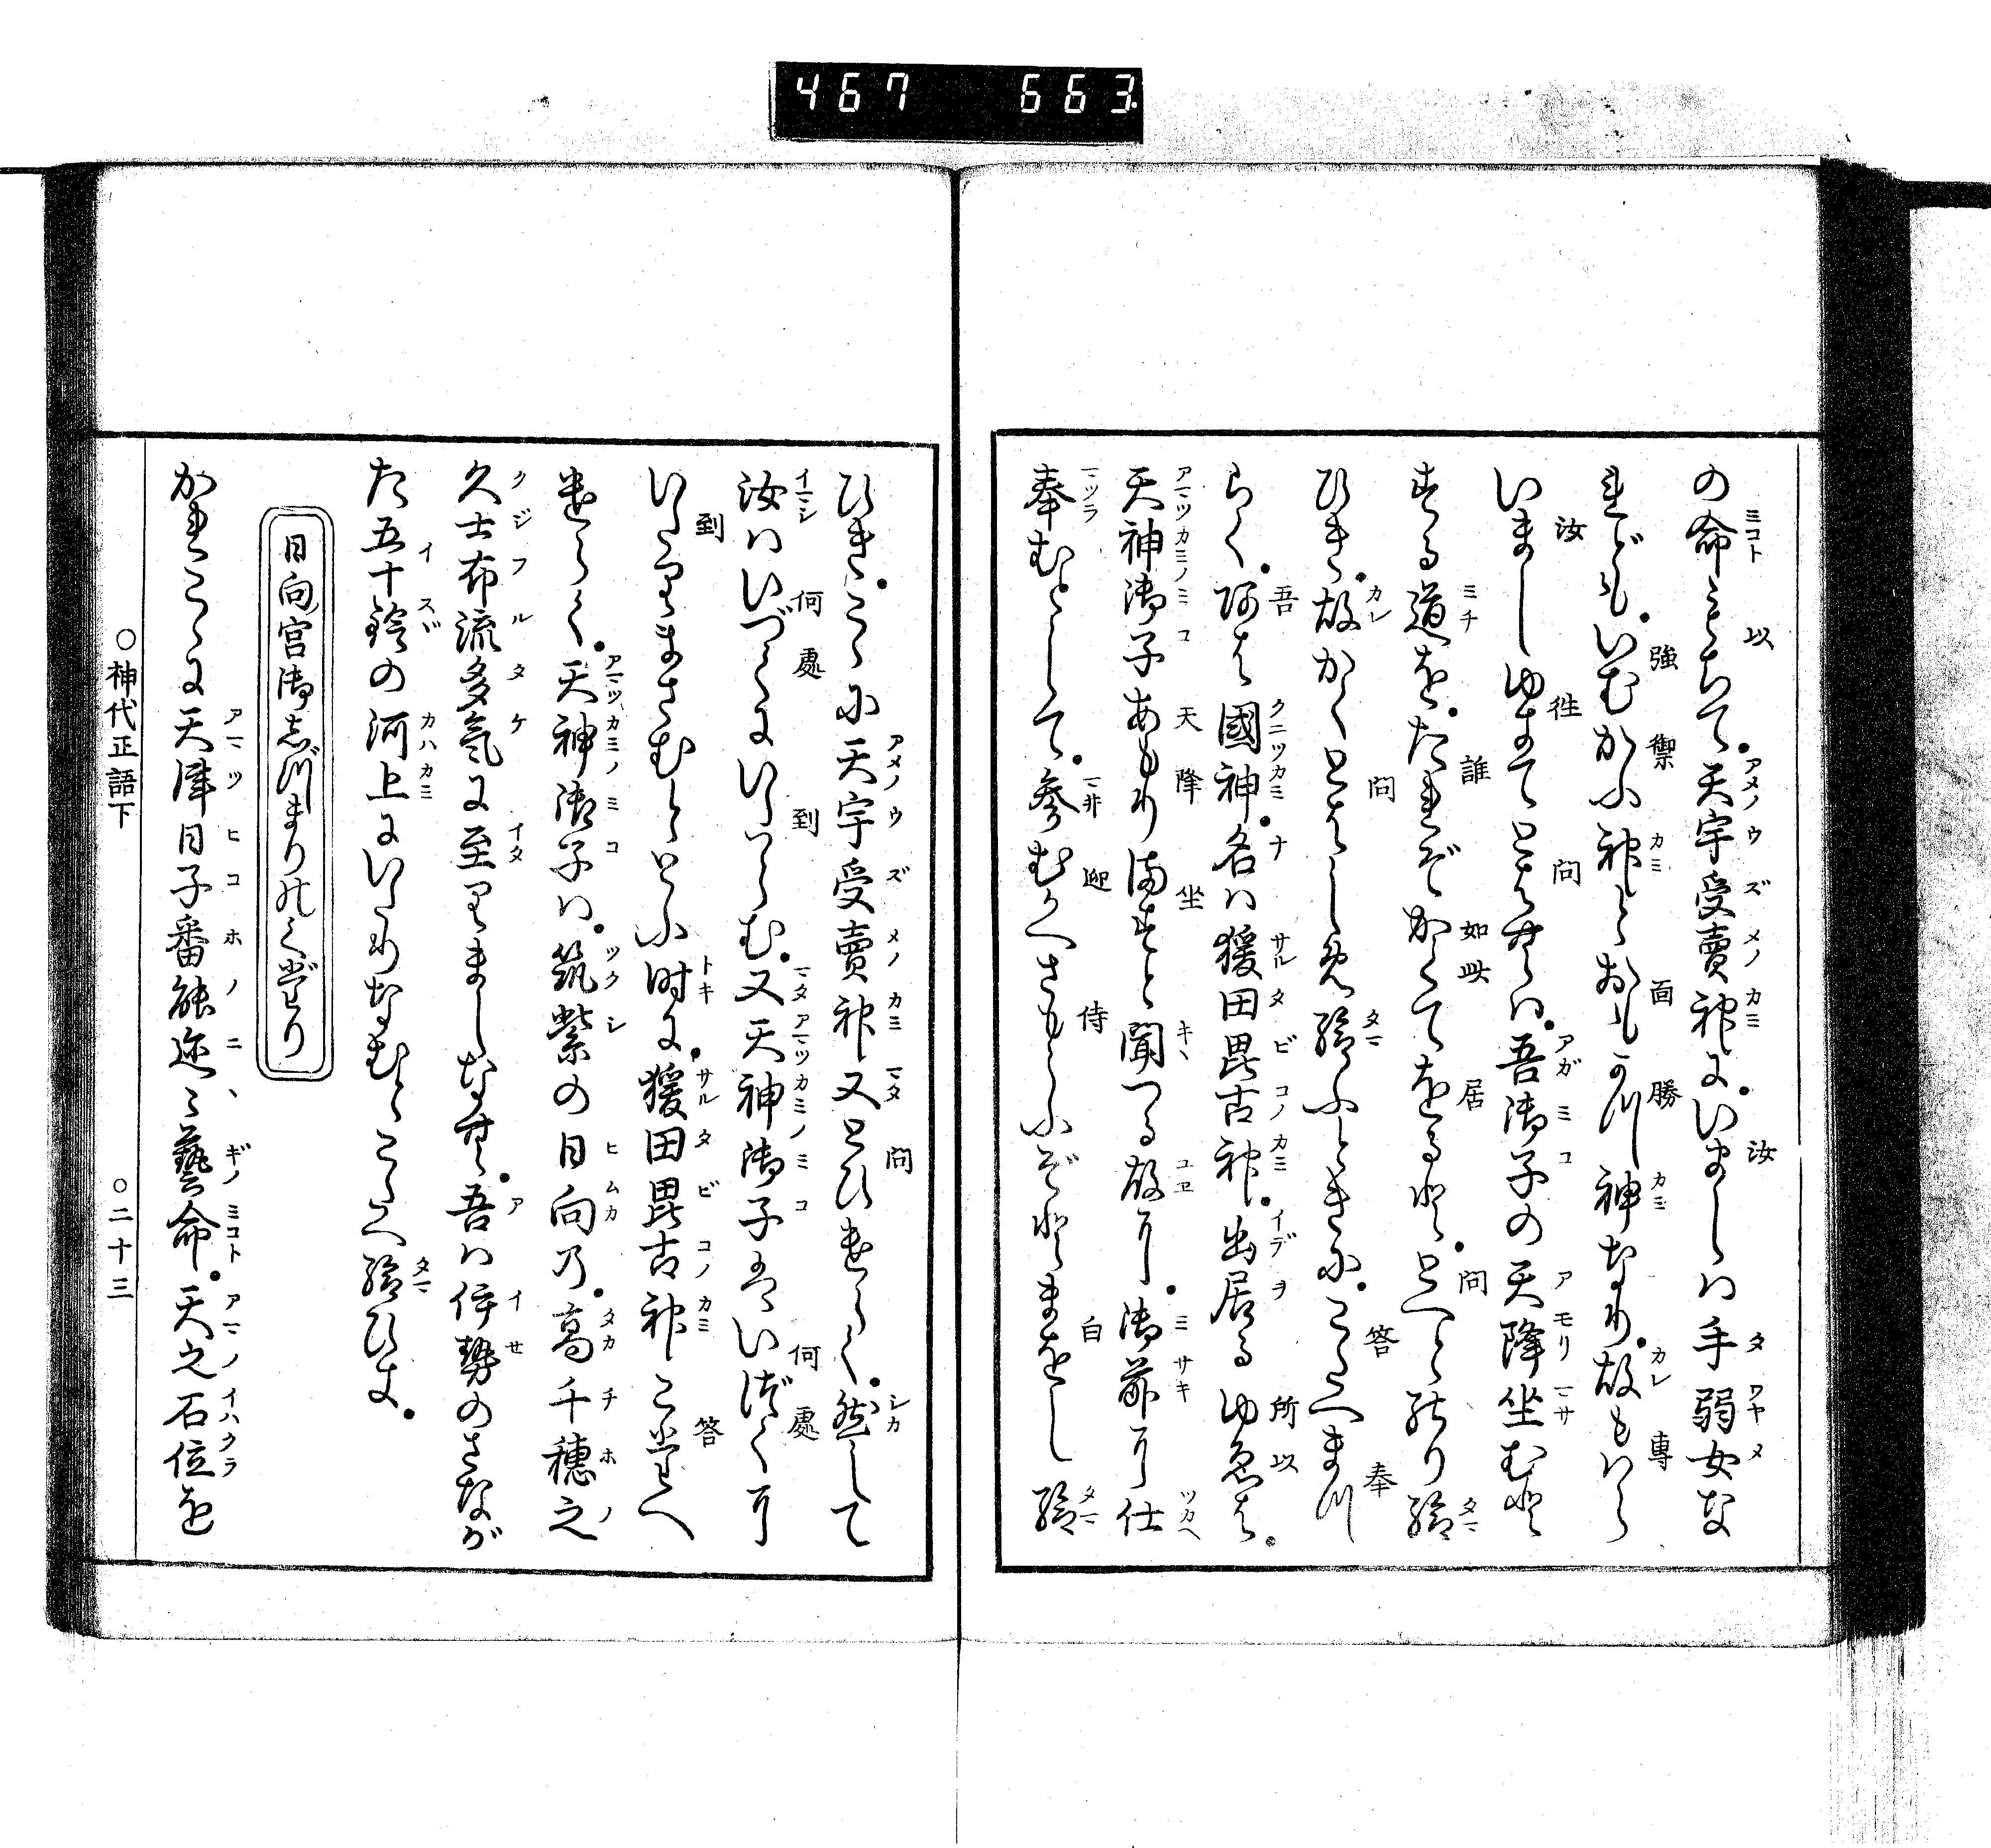 467 663
の命もちて。天宇受賣神に。いましは手弱女な
れども。いむかふ神とおもかつ神なり。故もはら
いましゆきてとはせらくは。吾御子の天降坐むと
する道を。たれぞかくてをると。とへと詔り給
ひき。故かくとはしめ給ふときに。こたへまつ
らく。阿は國神。名は猨田毘古神。出居るゆゑは。
天神御子あもりますと聞つる故に。御前に仕
奉むとして。参むかへさもらふぞとまをし給
ひき。こゝに天宇受賣神又とひけらく。然して
汝はいづくにいたらむ。又天神御子はいづくに
いたりまさむととふ時に。猨田毘古神こたへ
けらく。天神御子は。筑紫の日向乃。高千穂之
久士布流多氣に至りましなむ。吾は伊勢のさなが
た五十鈴の河上にいたりなむとこたへ給ひき。
日向宮御しづまりのくだり
かれこゝに天津日子番能迩々藝命。天之石位を
○神代正語下 ○二十三